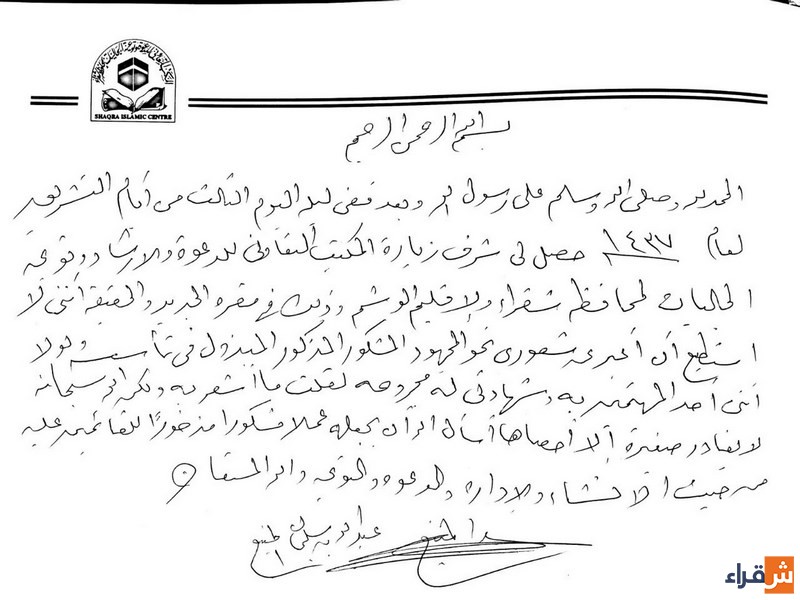 SHAQRA ISLAMIC CENTRE
بسم الله الرحمن الرحيم
الحمد لله وصلى الله وسلم على رسول الله وبعد ففي ليلة اليوم الثالث من أيام التشريق
لعام ١٤٣٧ حصل لي شرف زيارة المكتب التعاوني للدعوة والإرشاد وتوعية
الجاليات لمحافظة شقراء وإقليم الوشم وذلك في مقره الجديد والحقيقة أنني لا
استطيع أن أعبر عن شعوري نحو المجهود المشكور المذكور المبذول في تأسيسه ولولا
أنني أحد المهتمين به وشهادتي له مجروحه لقلت ما أشعر به ولكن الله سبحانه
لا يغادر صغيرة إلا أحصاها أسأل الله أن يجعله عملا مشكورا مذخورًا للقائمين عليه
من حيث الانشاء والإدارة والدعوة والتوعية والله المستعان
عبدالله بن سليمان المنيع
شقراء